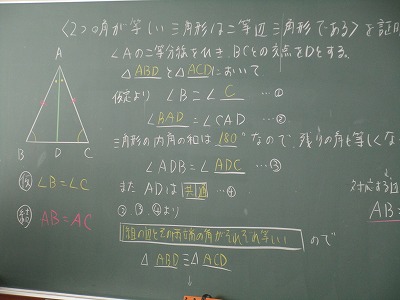 〈2つの角が等しい三角形は二等辺三角形である〉を証明
∠Aの二等分線をひき、BCとの交点をDとする。
△ABDと△ACDにおいて
仮定より ∠B=∠C …①
∠BAD=∠CAD …②
三角形の内角の和は180°なので、残りの角も等しくな
∠ADB=∠ADC …③
また ADは共通 …④
②、③、④より
1組の辺とその両端の角がそれぞれ等しい ので
△ABD≡△ACD
↓
A
B D C
仮 ∠B=∠C
結 AB=AC
対応する辺
AB=